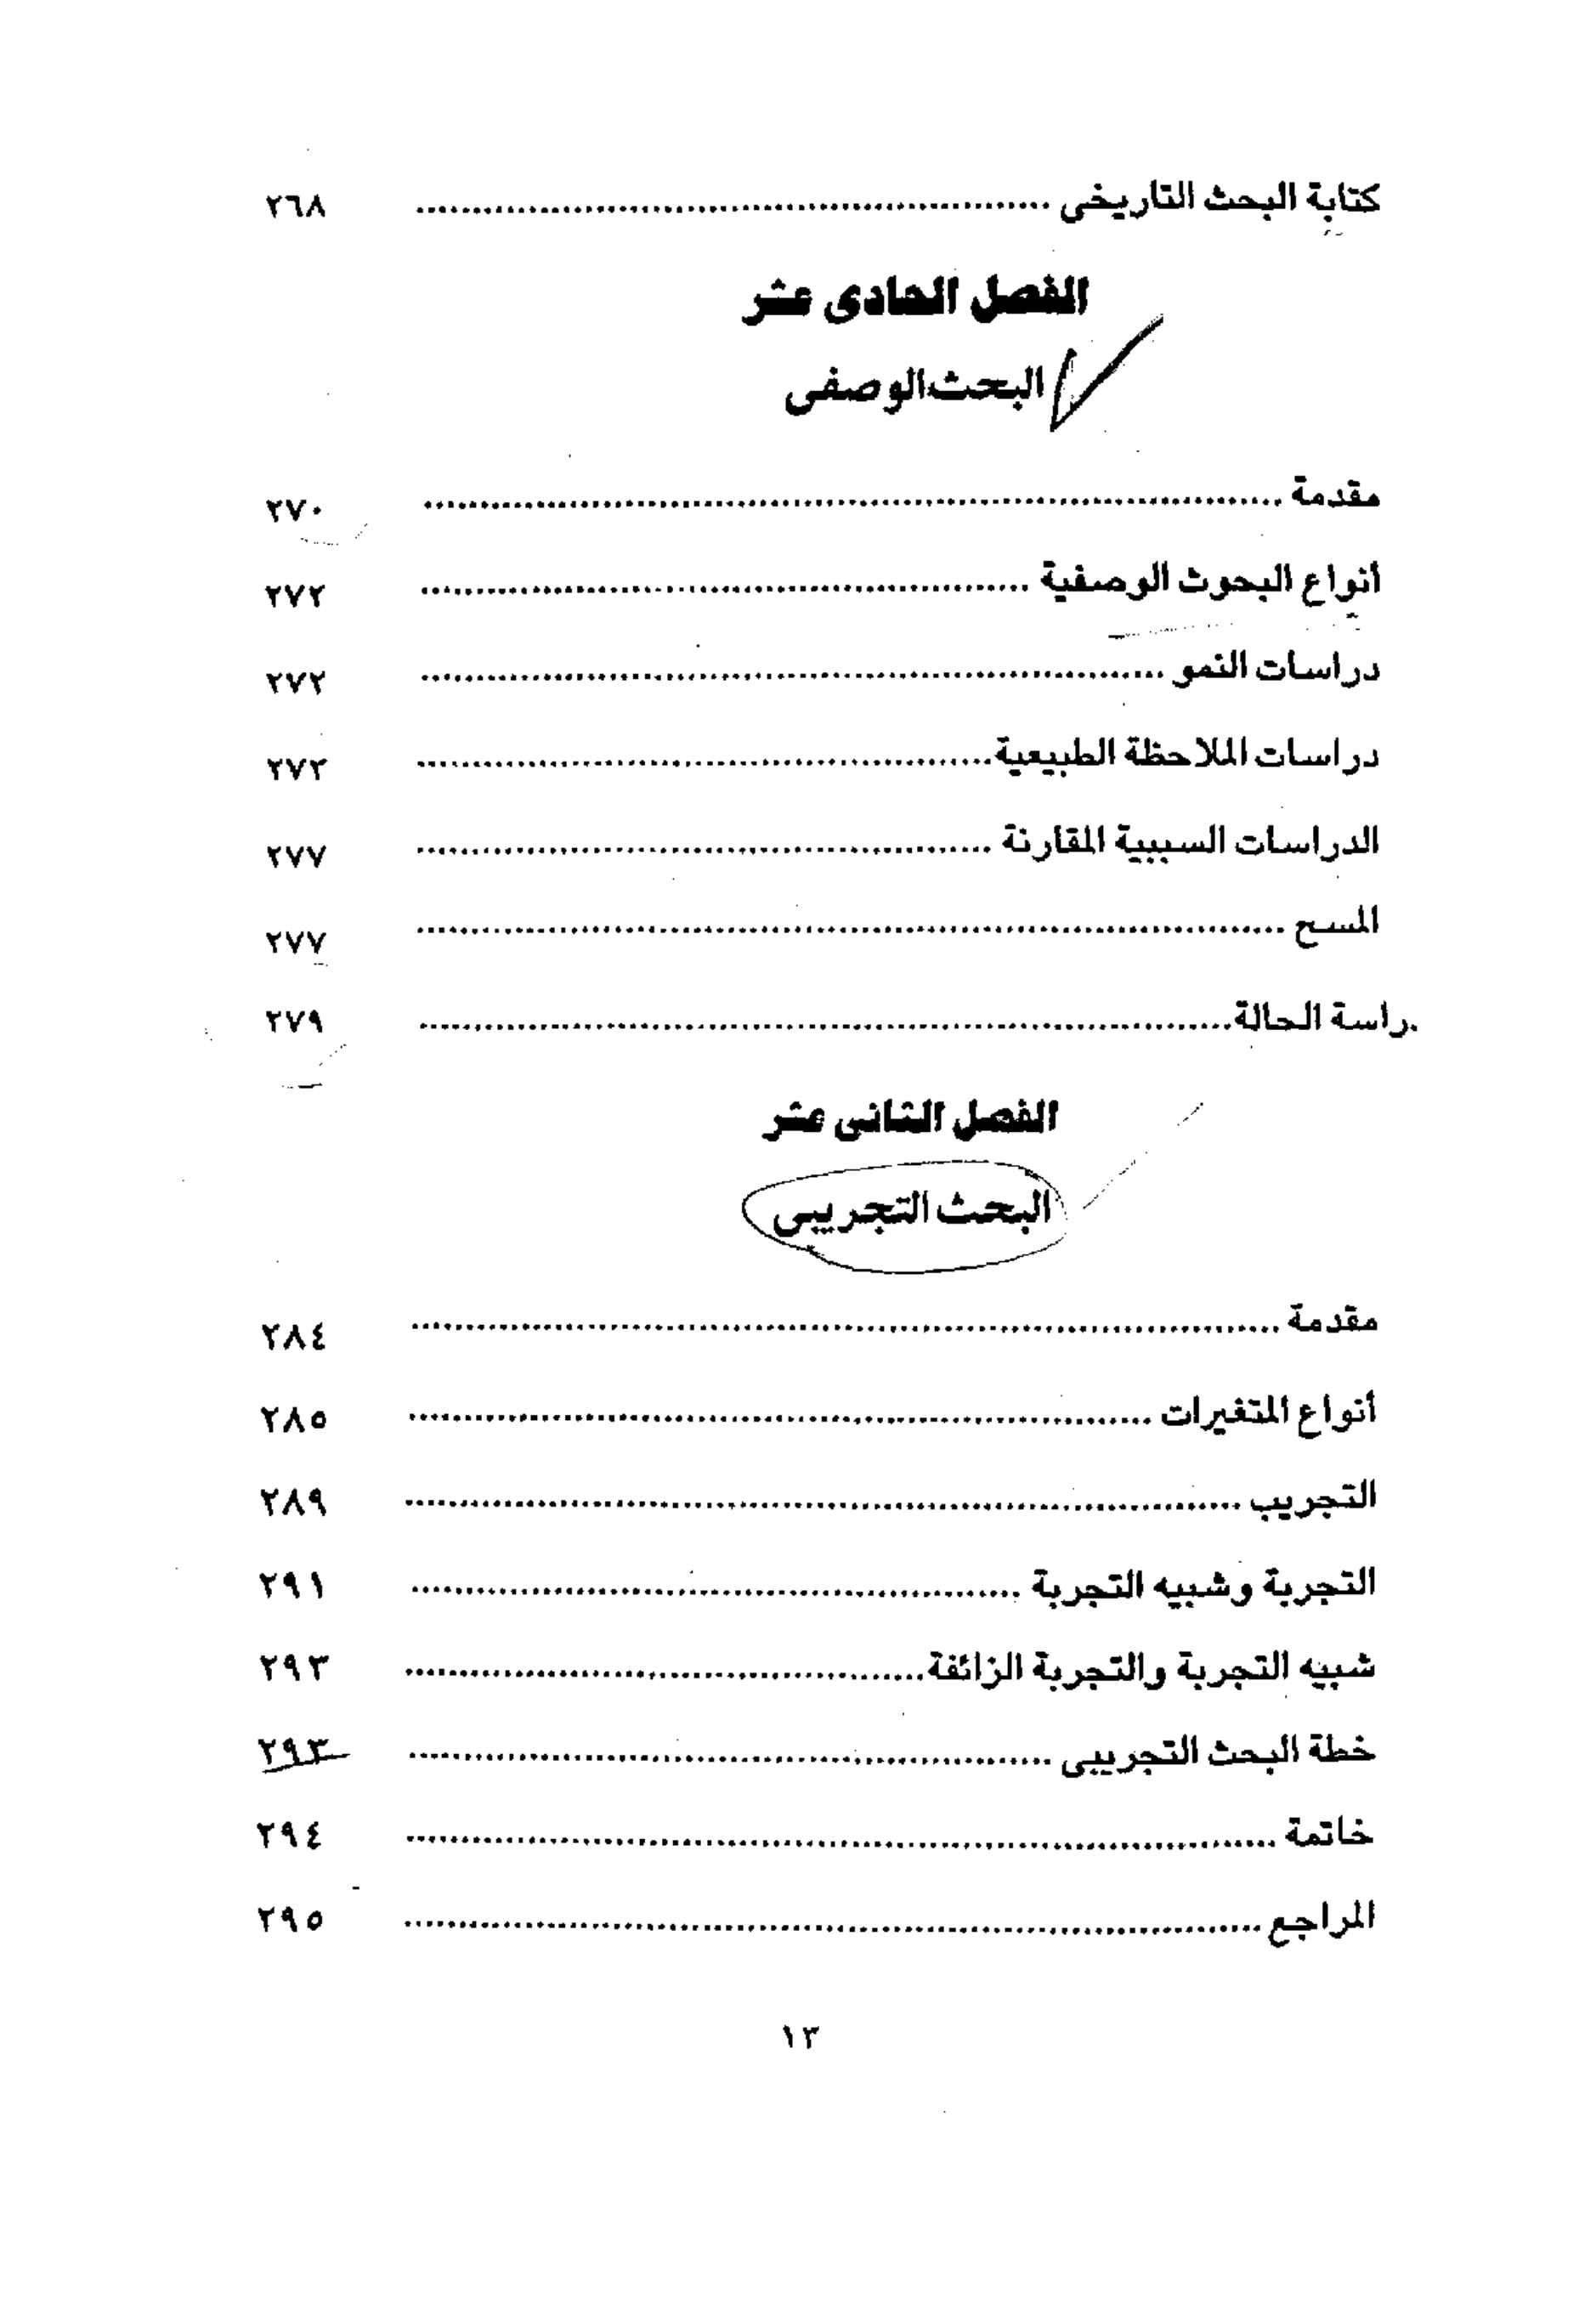 كتابة البحث التاريخى ........................................ ٢٦٨
الفصل الحادى عشر
البحث الوصفى
مقدمة ........................................ ٢٧٠
أنواع البحوث الوصفية ........................................ ٢٧٢
دراسات النمو ........................................ ٢٧٢
دراسات الملاحظة الطبيعية ........................................ ٢٧٣
الدراسات السببية المقارنة ........................................ ٢٧٧
المسح ........................................ ٢٧٧
راسة الحالة ........................................ ٢٧٩
الفصل الثانى عشر
البحث التجريبى
مقدمة ........................................ ٢٨٤
أنواع المتغيرات ........................................ ٢٨٥
التجريب ........................................ ٢٨٩
التجربة وشبيه التجربة ........................................ ٢٩١
شبيه التجربة والتجربة الزائفة ........................................ ٢٩٣
خطة البحث التجريبى ........................................ ٢٩٣
خاتمة ........................................ ٢٩٤
المراجع ........................................ ٢٩٥
١٣